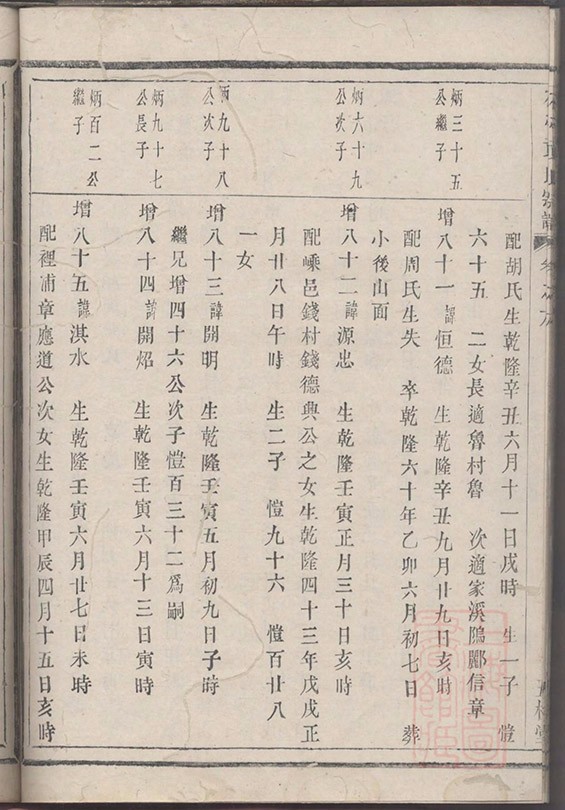 宗譜
配胡氏生乾隆辛丑六月十一日戌時　生一子　愷
六十五　二女長適魯村魯　次適家溪隖酈信章
炳三十五
公繼子
增八十一諱恒德　生乾隆辛丑九月廿九日亥時
配周氏生失　卒乾隆六十年乙卯六月初七日　葬
小後山面
炳六十九
公次子
增八十二諱源忠　生乾隆壬寅正月三十日亥時
配嵊邑錢村錢德興公之女生乾隆四十三年戊戌正
月廿八日午時　生二子　愷九十六　愷百廿八
一女
炳九十八
公次子
增八十三諱開明　生乾隆壬寅五月初九日子時
繼兄增四十六公次子愷百三十二為嗣
炳九十七
公長子
增八十四諱開炤　生乾隆壬寅六月十三日寅時
炳百二公
繼子
增八十五諱淇水　生乾隆壬寅六月廿七日未時
配裡浦章應道公次女生乾隆甲辰四月十五日亥時